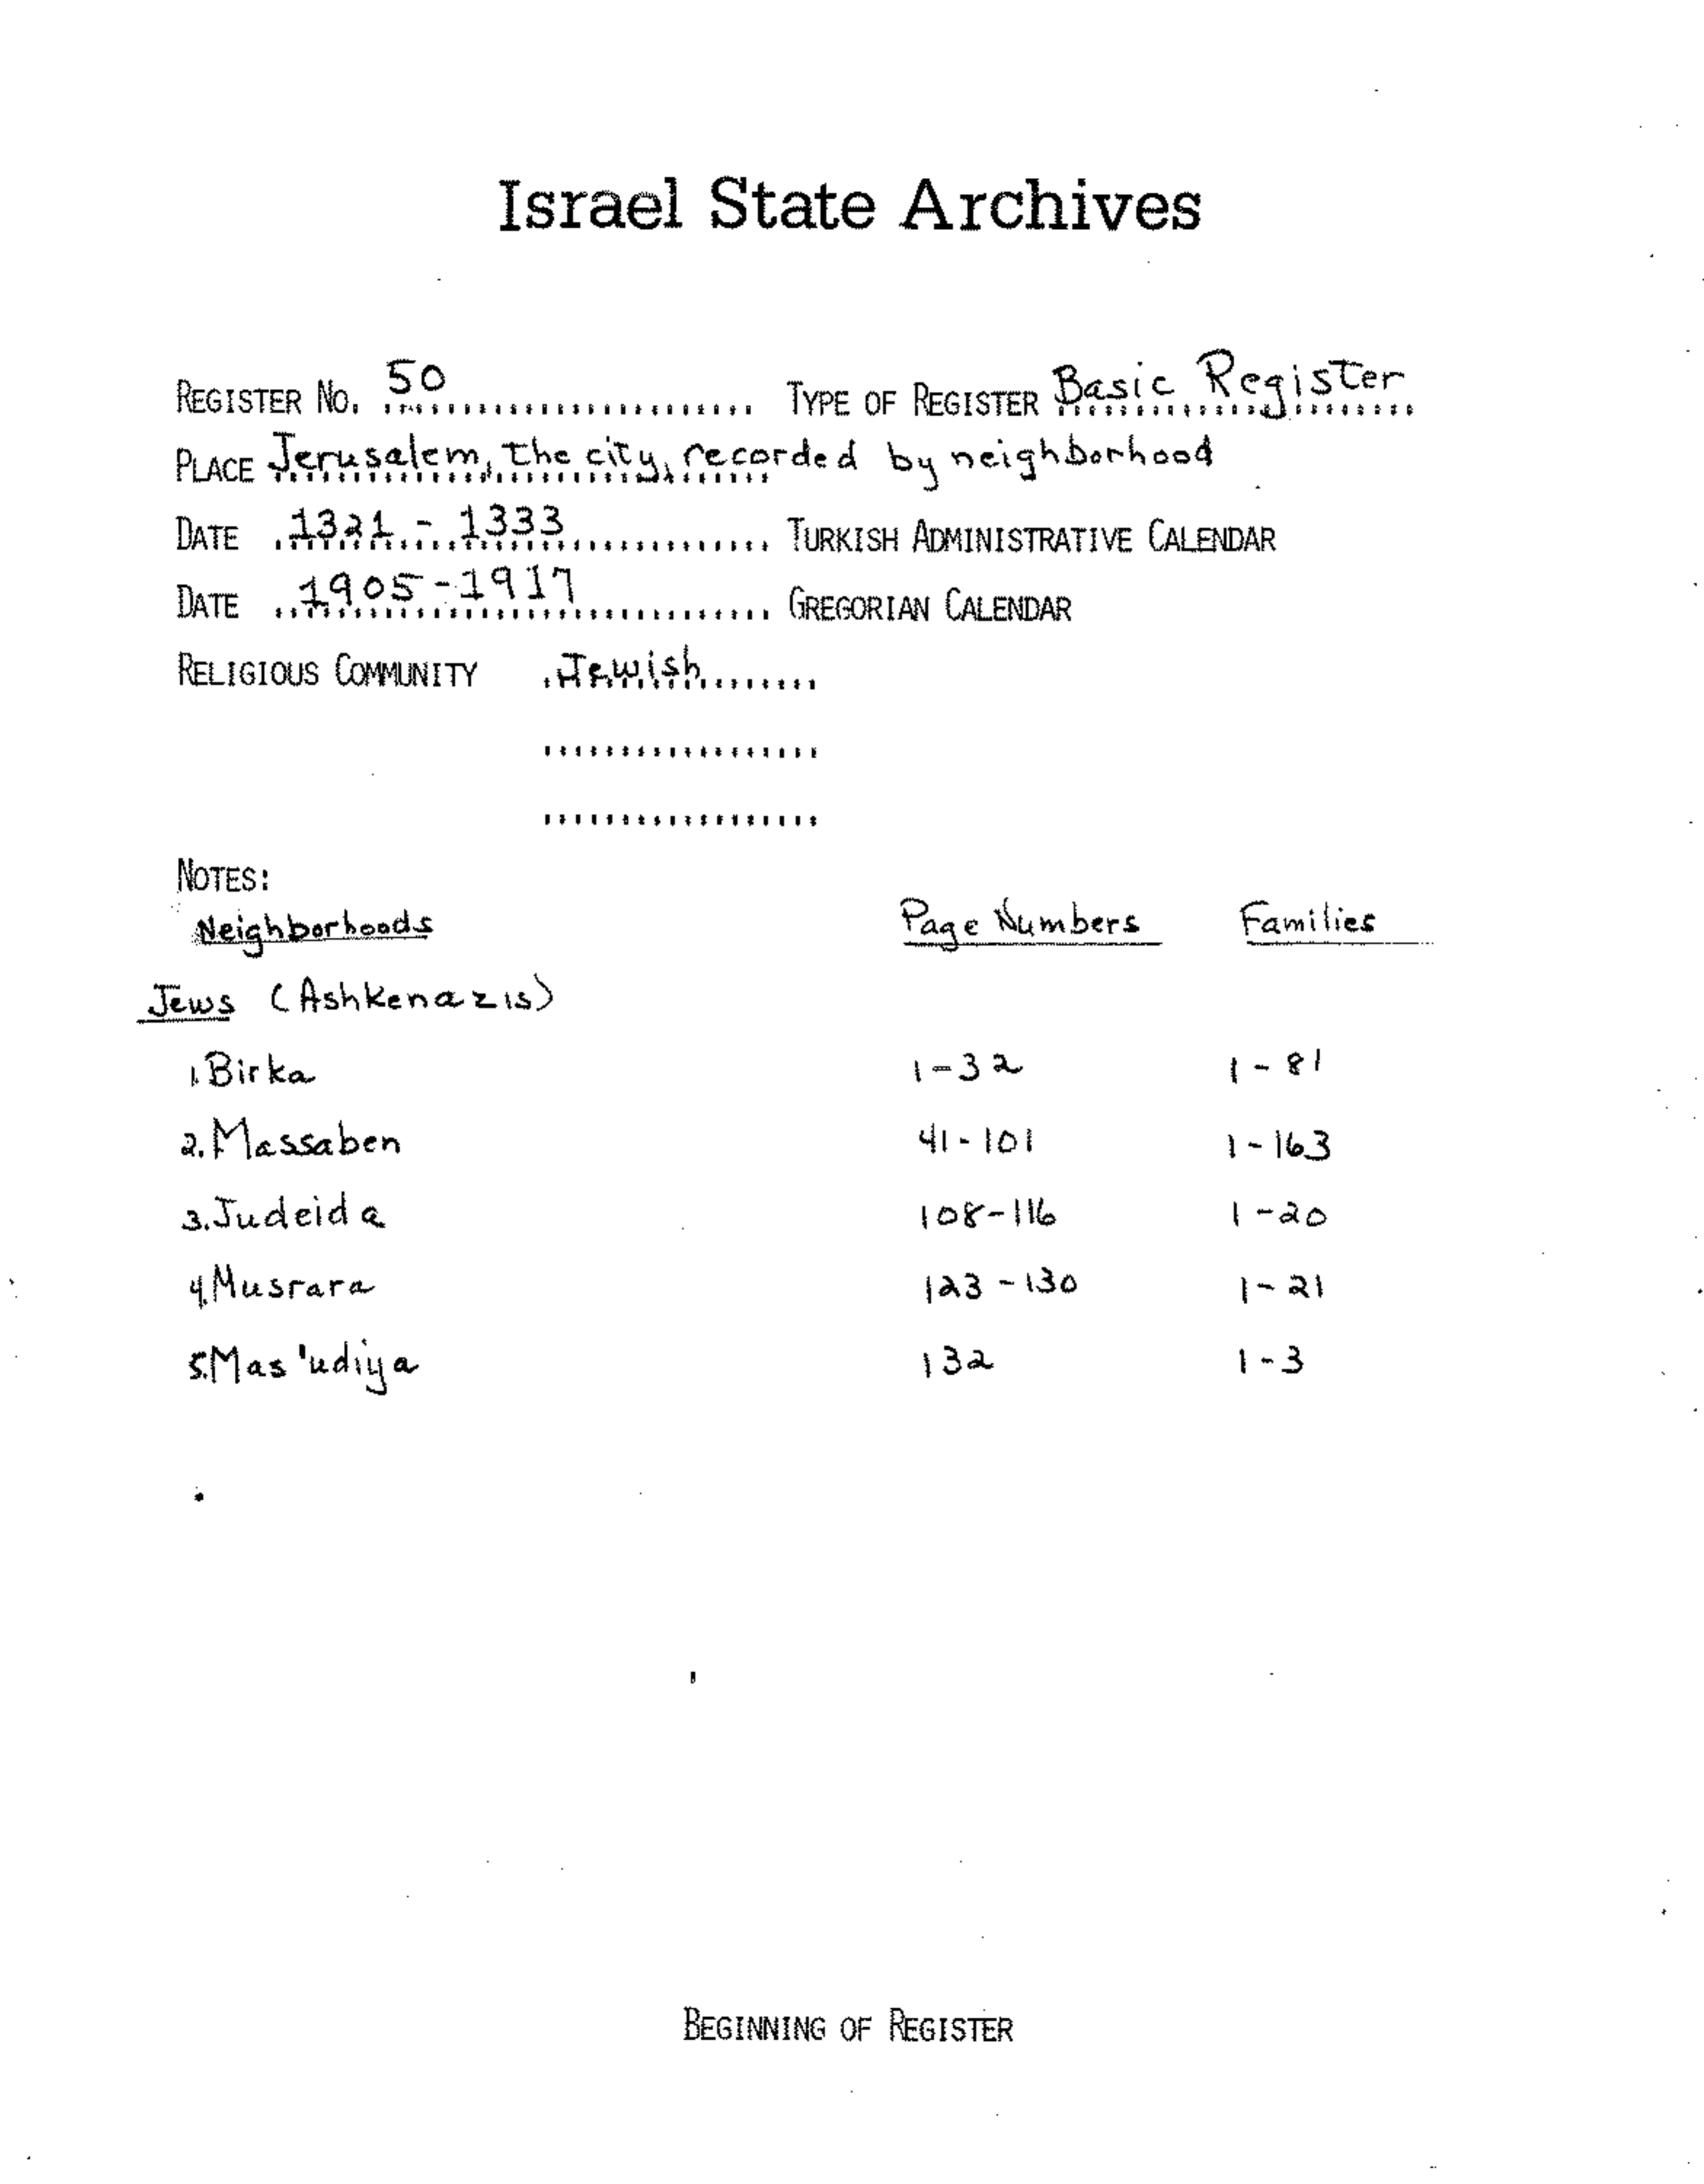 Israel State Archives
REGISTER NO. 50 TYPE OF REGISTER Basic Register
PLACE Jerusalem, the city, recorded by neighborhood
DATE 1321 - 1333 TURKISH ADMINISTRATIVE CALENDAR
DATE 1905-1917 GREGORIAN CALENDAR
RELIGIOUS COMMUNITY Jewish
NOTES:
Neighborhoods Page Numbers Families
Jews (Ashkenazis)
1. Birka 1-32 1-81
2. Massaben 41-101 1-163
3. Judeida 108-116 1-20
4. Musrara 123-130 1-21
5. Mas'udiya 132 1-3
BEGINNING OF REGISTER